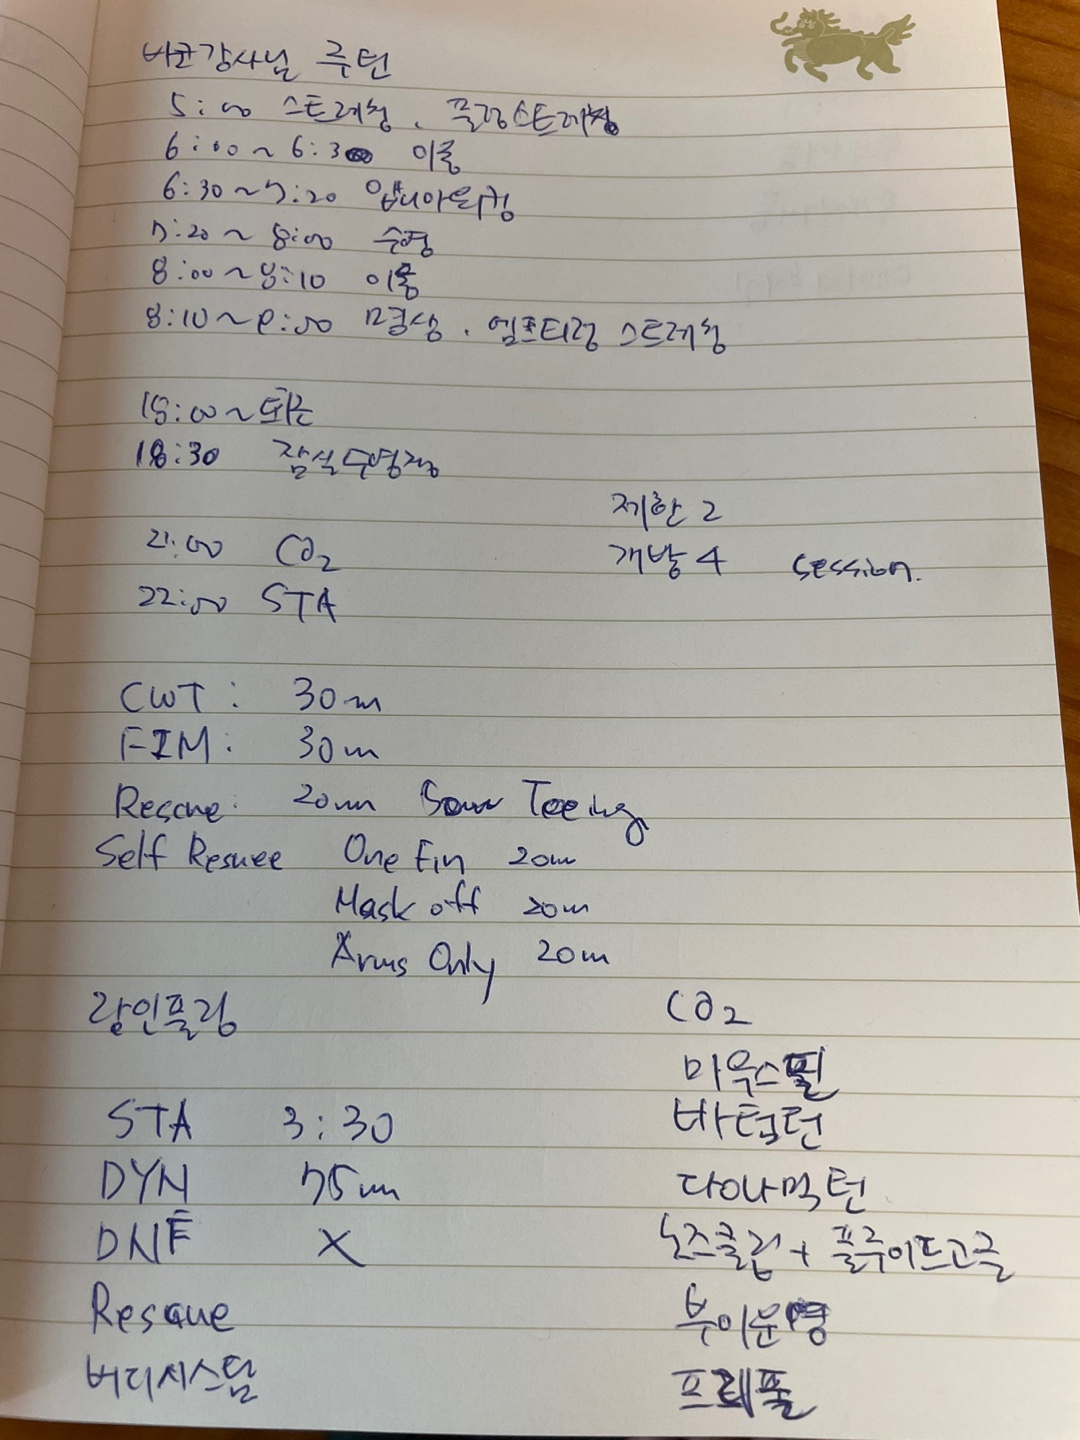 바균강사님 루턴
5:00 스트레칭. 풀링스트레칭
6:00~6:30 이동
6:30~7:20 압뇌아트레이닝
7:20~8:00 수영
8:00~8:10 이동
8:10~9:00 명상. 엠프티링 스트레칭
18:00~퇴근
18:30 잠실수영장
제한 2
21:00 CO2 개방 4 session.
22:00 STA
CWT: 30m
FIM: 30m
Rescue: 20m
Self Resuee One Fin 20m
Mask off 20m
Arms Only 20m
랑인풀링 CO2
마우스필
STA 3:30 바텀턴
DYN 75m 다이나믹턴
DNF X 노즈클립 + 플루이드고글
Rescue 부이운영
버디시스템 프리풀